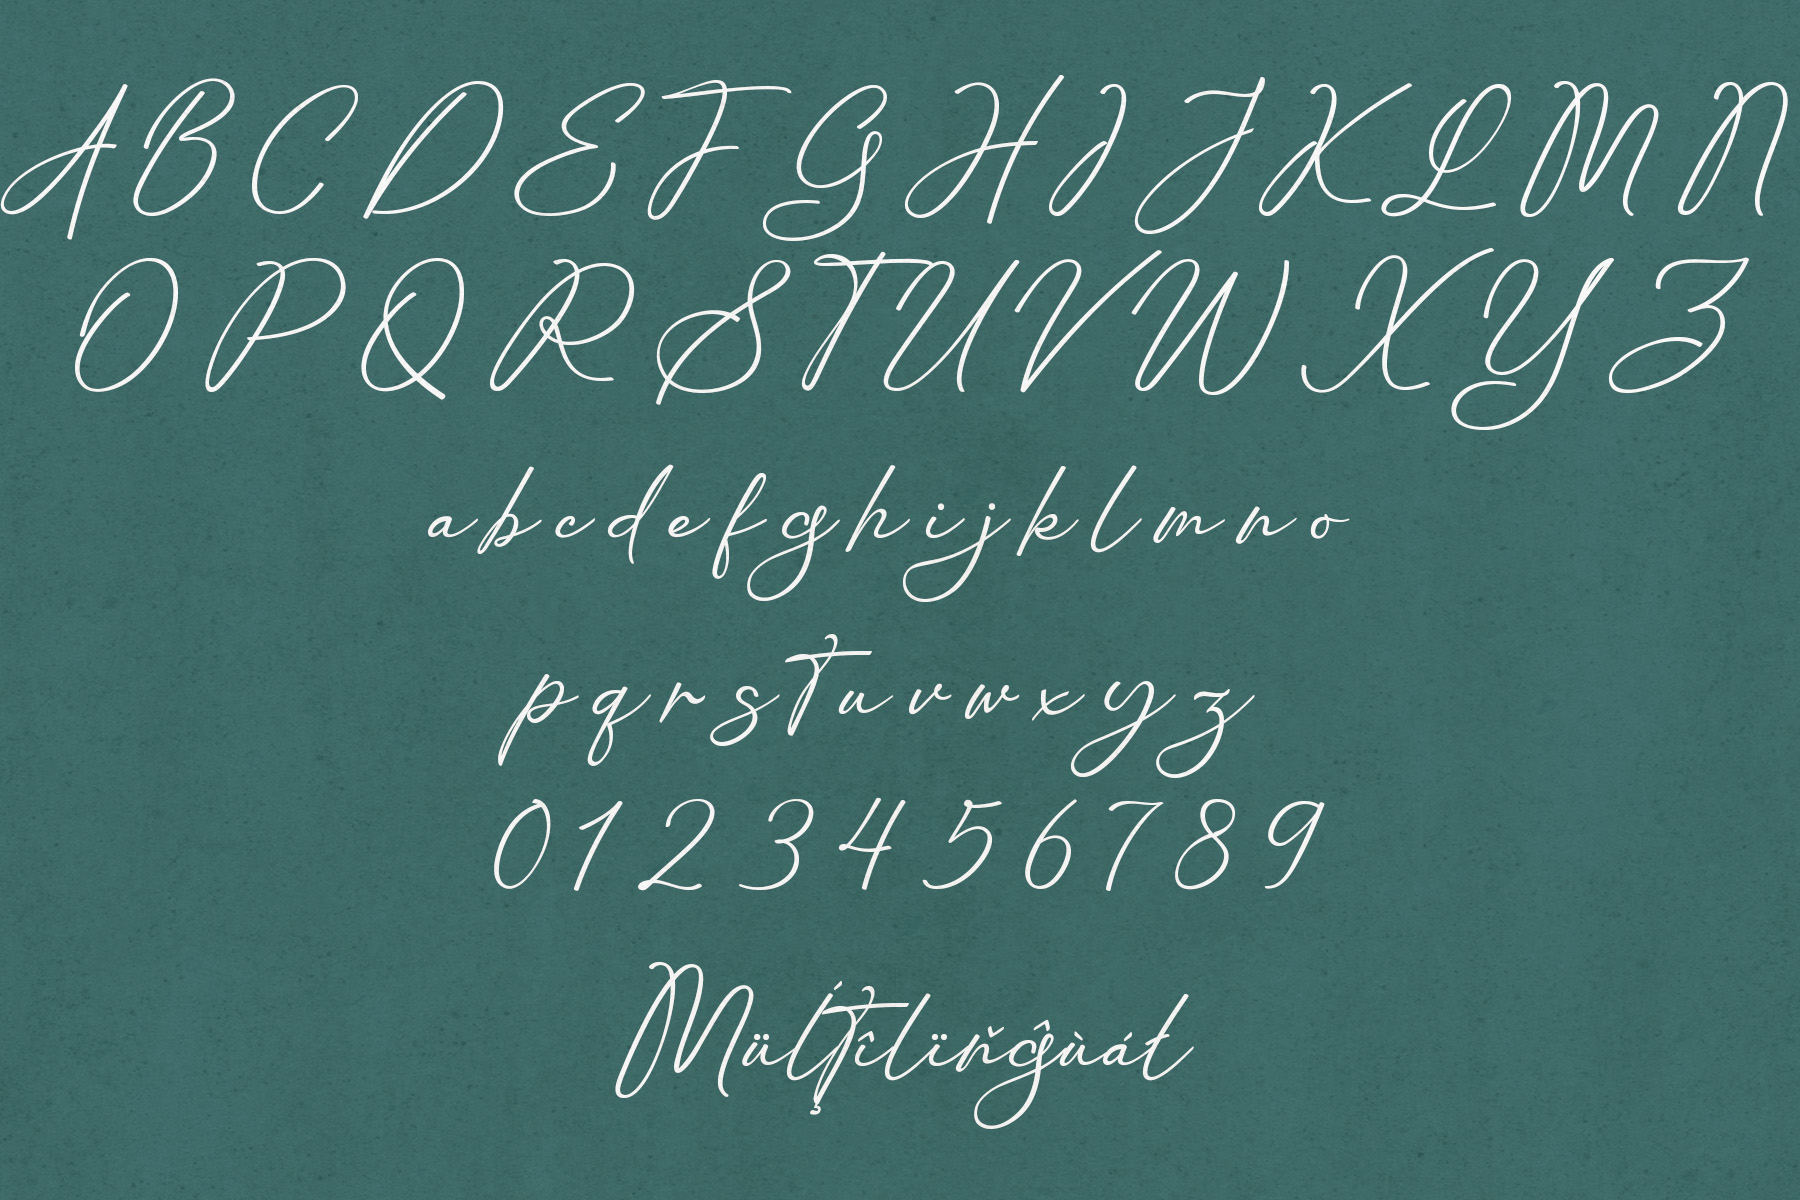 A B C D E F G H I J K L M N
O P Q R S T U V W X Y Z
a b c d e f g h i j k l m n o
p q r s t u v w x y z
0 1 2 3 4 5 6 7 8 9
Müĺţîlïňĝùáł